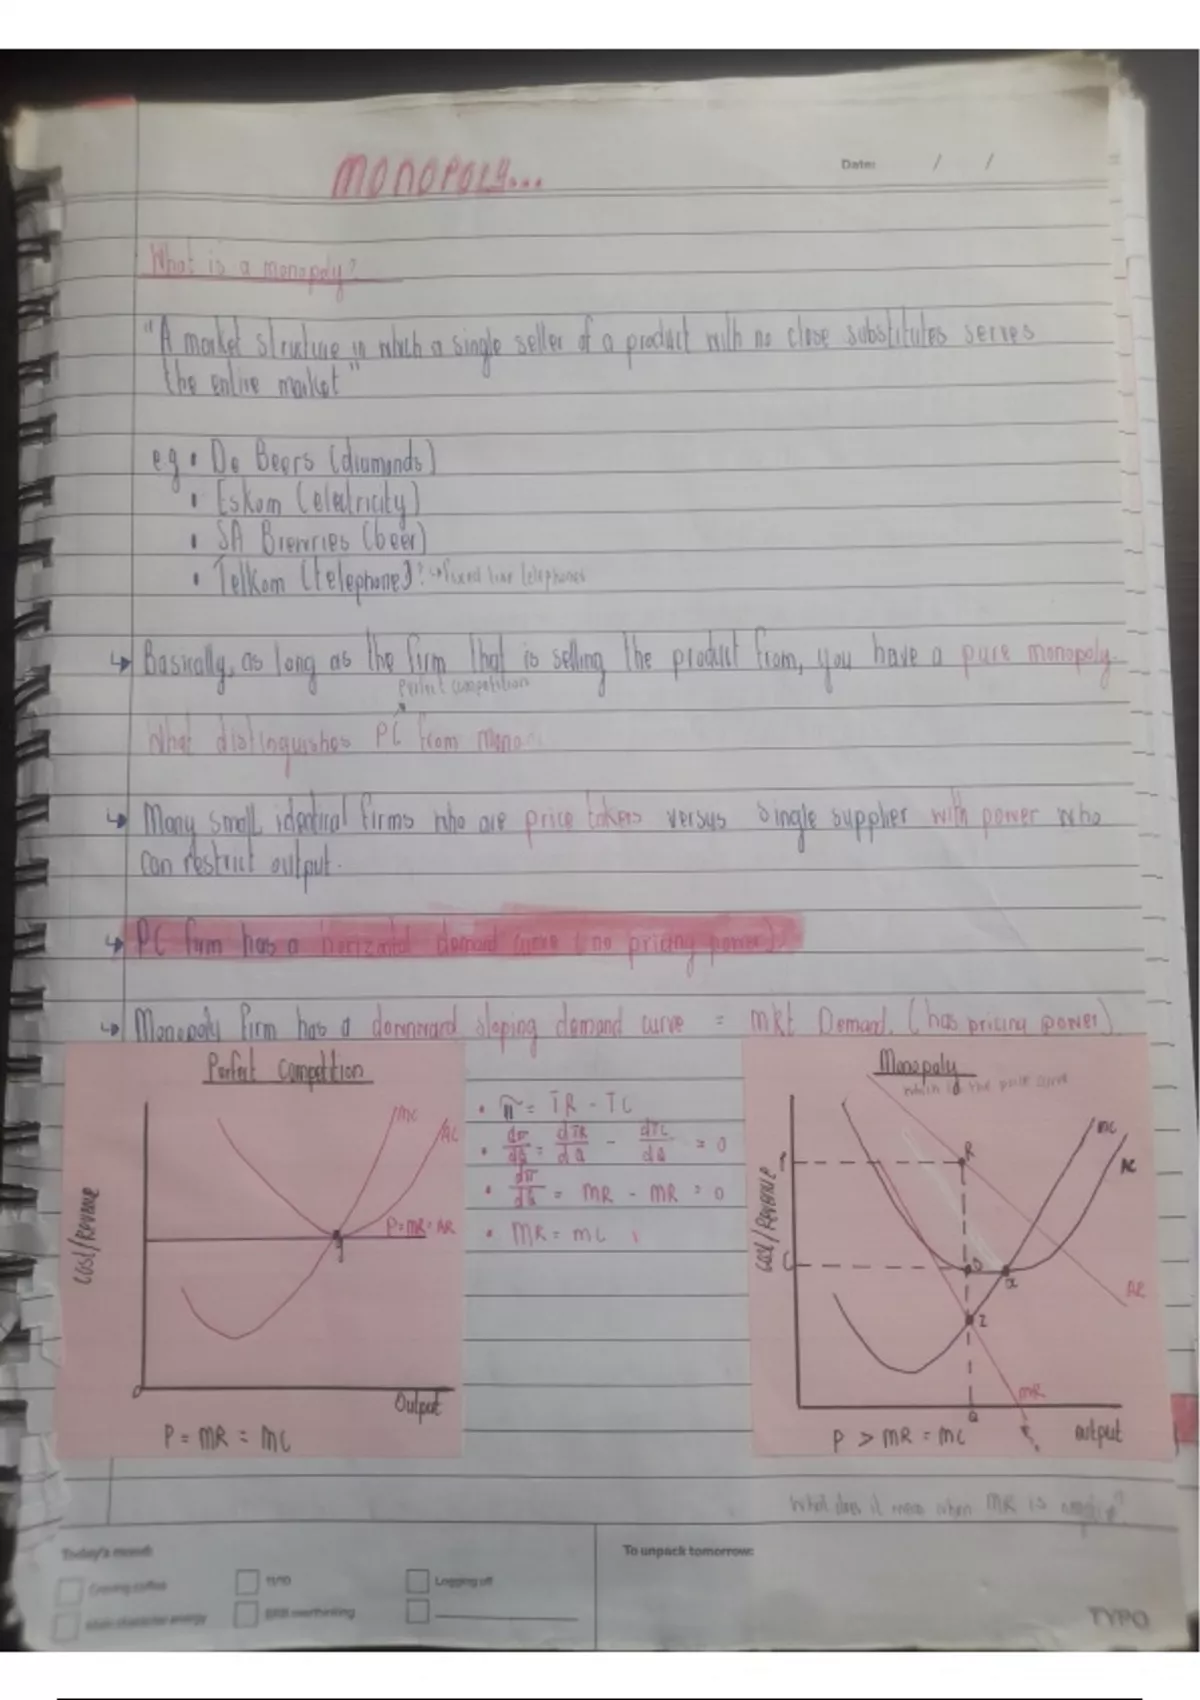 MONOPOLY...
Date: / /
What is a monopoly?
"A market structure in which a single seller of a product with no close substitutes serves
the entire market"
eg • De Beers (diamonds)
• Eskom (electricity)
• SA Brewries (beer)
• Telkom (telephone)? ↳ fixed line telephones
↳ Basically, as long as the firm that is selling the product from, you have a pure monopoly.
Perfect competition
What distinguishes PC from mono
↳ Many small, identical firms who are price takers versus single supplier with power who
can restrict output.
↳ PC firm has a horizontal demand curve (no pricing power).
↳ Monopoly firm has a downward sloping demand curve = mkt Demand. (has pricing power)
Perfect Competition
MC
AC
Cost/Revenue
P=MR=AR
q
0
Output
P = MR = MC
• π = TR - TC
• dπ/dQ = dTR/dQ - dTC/dQ = 0
• dπ/dQ = MR - MR = 0
• MR = MC
Monopoly
which is the price curve
MC
AC
R
Cost/Revenue
C
x
AR
Z
MR
Q
output
P > MR = MC
What does it mean when MR is negative?
Today's mood:
Craving coffee
TFTO
Logging off
Main character energy
Still overthinking
To unpack tomorrow:
TYPO